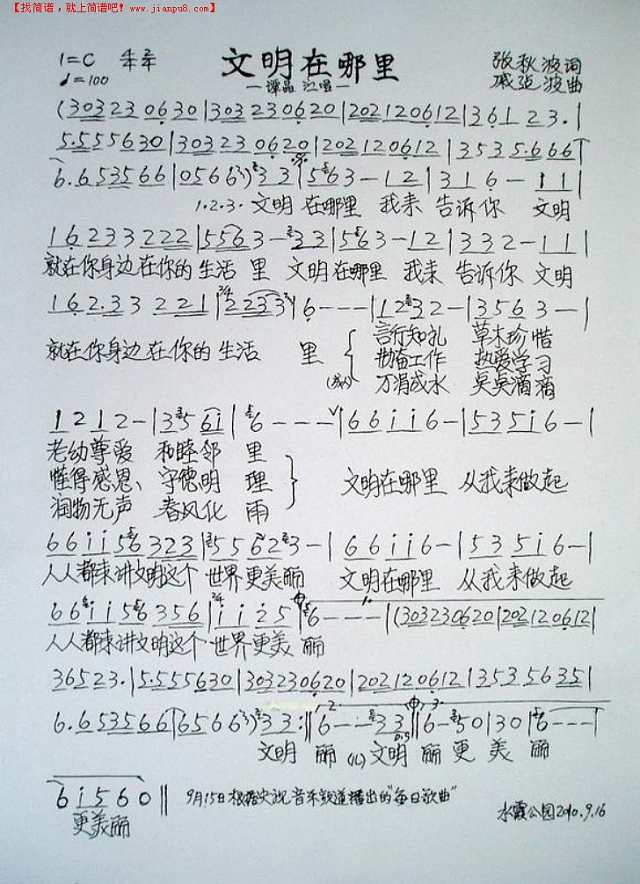 【找简谱，就上简谱吧! www.jianpu8.com】
1=C
文明在哪里
张秋波 词
♩=100
—谭晶 演唱—
戚建波 曲
(303230630|303230620|202120612|36123.|
5.555630|303230620|202120612|3535.666|
6.653566|0566 33|563-12|316-11|
1.2.3.文明 在哪里 我来 告诉你 文明
16233222|5563-33|563-12|332-11|
就在你身边在你的生活 里 文明在哪里 我来 告诉你 文明
162.33221|2233|6---|1232-|3563-|
就在你身边在你的生活 里
言行知礼 草木珍惜
勤奋工作 热爱学习
万涓成水 点点滴滴
1212-|356i|6---|66ii6-|535i6-|
老幼尊爱 和睦邻里
懂得感恩、守德明理
润物无声 春风化雨
文明在哪里 从我来做起
66ii56323|55623-|66ii6-|535i6-|
人人都来讲文明这个 世界更美丽 文明在哪里 从我来做起
66ii56356|iii5|6---|(303230620|202120612|
人人都来讲文明这个 世界更美丽
36523.|5.555630|303230620|202120612|35356535|
6.653566|6566)33:|6--33|6-50|30|6---|
文明 丽 文明 丽 更 美 丽
6i560‖
9月15日根据央视音乐频道播出的"每日歌曲"
更美丽
水霞公园2010.9.16